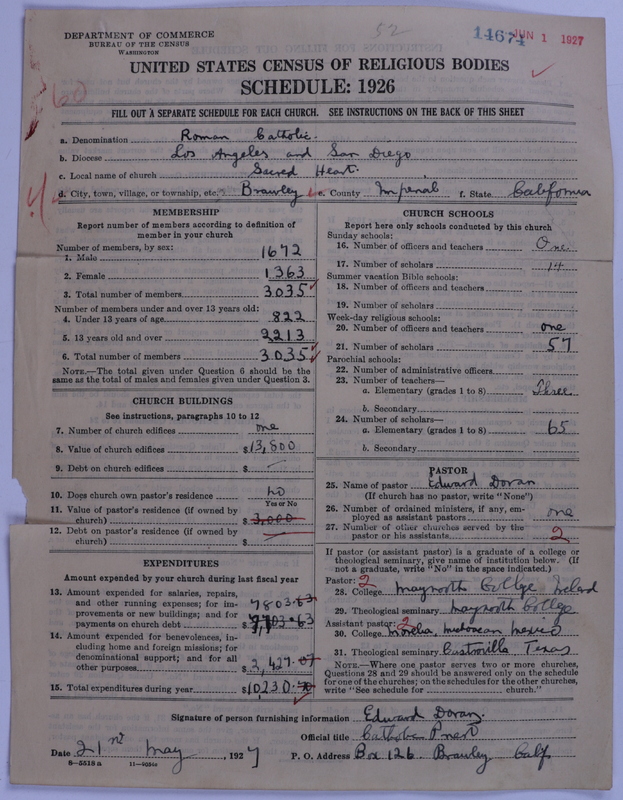 DEPARTMENT OF COMMERCE
BUREAU OF THE CENSUS
WASHINGTON
52
14674 JUN 1 1927
UNITED STATES CENSUS OF RELIGIOUS BODIES
SCHEDULE: 1926
60
FILL OUT A SEPARATE SCHEDULE FOR EACH CHURCH. SEE INSTRUCTIONS ON THE BACK OF THIS SHEET
a. Denomination Roman Catholic.
b. Diocese Los Angeles and San Diego
c. Local name of church Sacred Heart.
d. City, town, village, or township, etc. Brawley e. County Imperial f. State California
MEMBERSHIP
Report number of members according to definition of
member in your church
Number of members, by sex:
1. Male 1672
2. Female 1363
3. Total number of members 3035
Number of members under and over 13 years old:
4. Under 13 years of age 822
5. 13 years old and over 2213
6. Total number of members 3035
NOTE.—The total given under Question 6 should be the
same as the total of males and females given under Question 3.
CHURCH BUILDINGS
See instructions, paragraphs 10 to 12
7. Number of church edifices one
8. Value of church edifices $13,800
9. Debt on church edifices $
10. Does church own pastor's residence no
Yes or No
11. Value of pastor's residence (if owned by
church) $3,000
12. Debt on pastor's residence (if owned by
church) $
EXPENDITURES
Amount expended by your church during last fiscal year
13. Amount expended for salaries, repairs,
and other running expenses; for im- 7803.63
provements or new buildings; and for
payments on church debt $7,803.63
14. Amount expended for benevolences, in-
cluding home and foreign missions; for
denominational support; and for all
other purposes 2,427.07
15. Total expenditures during year $10230.70
CHURCH SCHOOLS
Report here only schools conducted by this church
Sunday schools:
16. Number of officers and teachers One
17. Number of scholars 14
Summer vacation Bible schools:
18. Number of officers and teachers
19. Number of scholars
Week-day religious schools:
20. Number of officers and teachers one
21. Number of scholars 57
Parochial schools:
22. Number of administrative officers
23. Number of teachers—
a. Elementary (grades 1 to 8) Three
b. Secondary
24. Number of scholars—
a. Elementary (grades 1 to 8) 65
b. Secondary
PASTOR
25. Name of pastor Edward Doran
(If church has no pastor, write "None")
26. Number of ordained ministers, if any, em-
ployed as assistant pastors one
27. Number of other churches served by the
pastor or his assistants 2
If pastor (or assistant pastor) is a graduate of a college or
theological seminary, give name of institution below. (If
not a graduate, write "No" in the space indicated.)
Pastor: 2
28. College Maynooth College Ireland
29. Theological seminary Maynooth College
Assistant pastor: 2
30. College Morelia, Michoacan Mexico
31. Theological seminary Castroville, Texas
NOTE.—Where one pastor serves two or more churches,
Questions 28 and 29 should be answered only on the schedule
for one of the churches; on the schedules for the other churches,
write "See schedule for church."
Signature of person furnishing information Edward Doran.
Official title Catholic Priest
Date 21st May, 1927 P. O. Address Box 126 Brawley Calif
8—5518 a